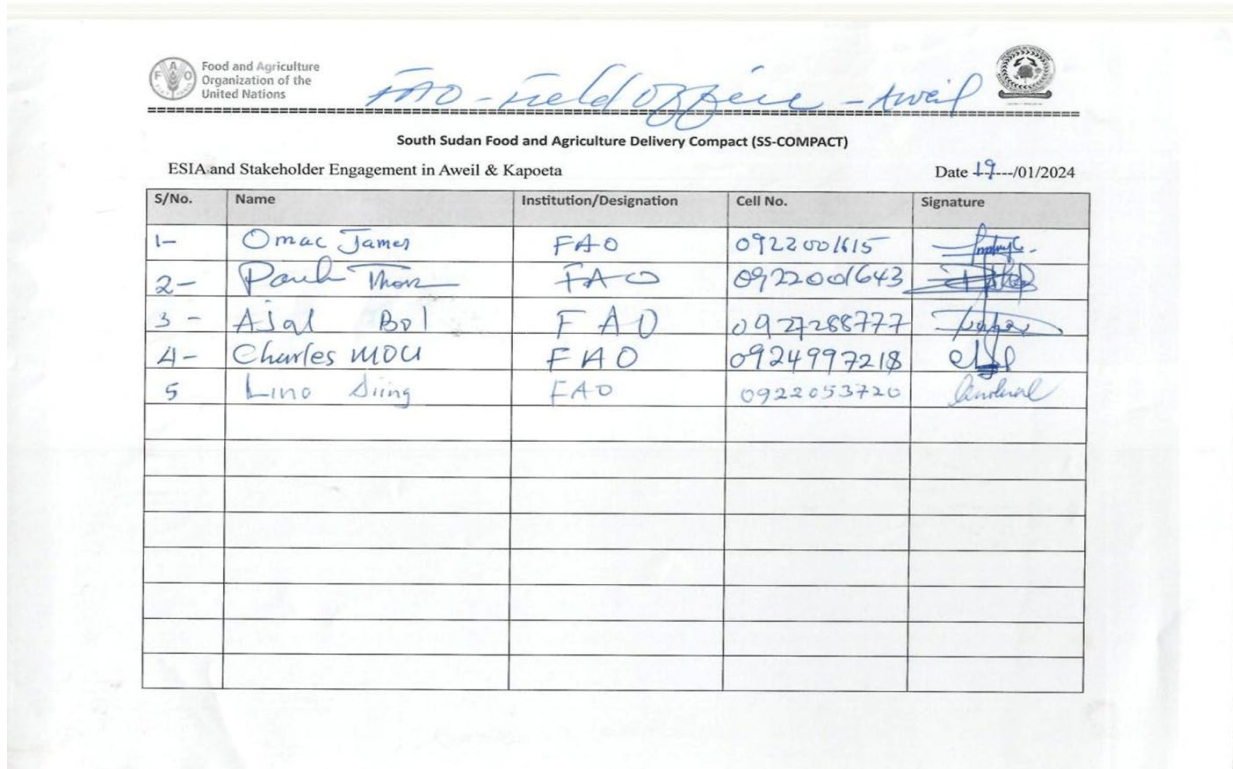 Food and Agriculture
Organization of the
United Nations
FAO - Field Office - Aweil
South Sudan Food and Agriculture Delivery Compact (SS-COMPACT)
ESIA and Stakeholder Engagement in Aweil & Kapoeta Date 19---/01/2024
S/No. Name Institution/Designation Cell No. Signature
1- Omac James FAO 0922001615
2- Paul FAO 0922001643
3- Ajal Bol FAO 0927288777
4- Charles MOU FAO 0924997218
5 Lino Diing FAO 0922053720